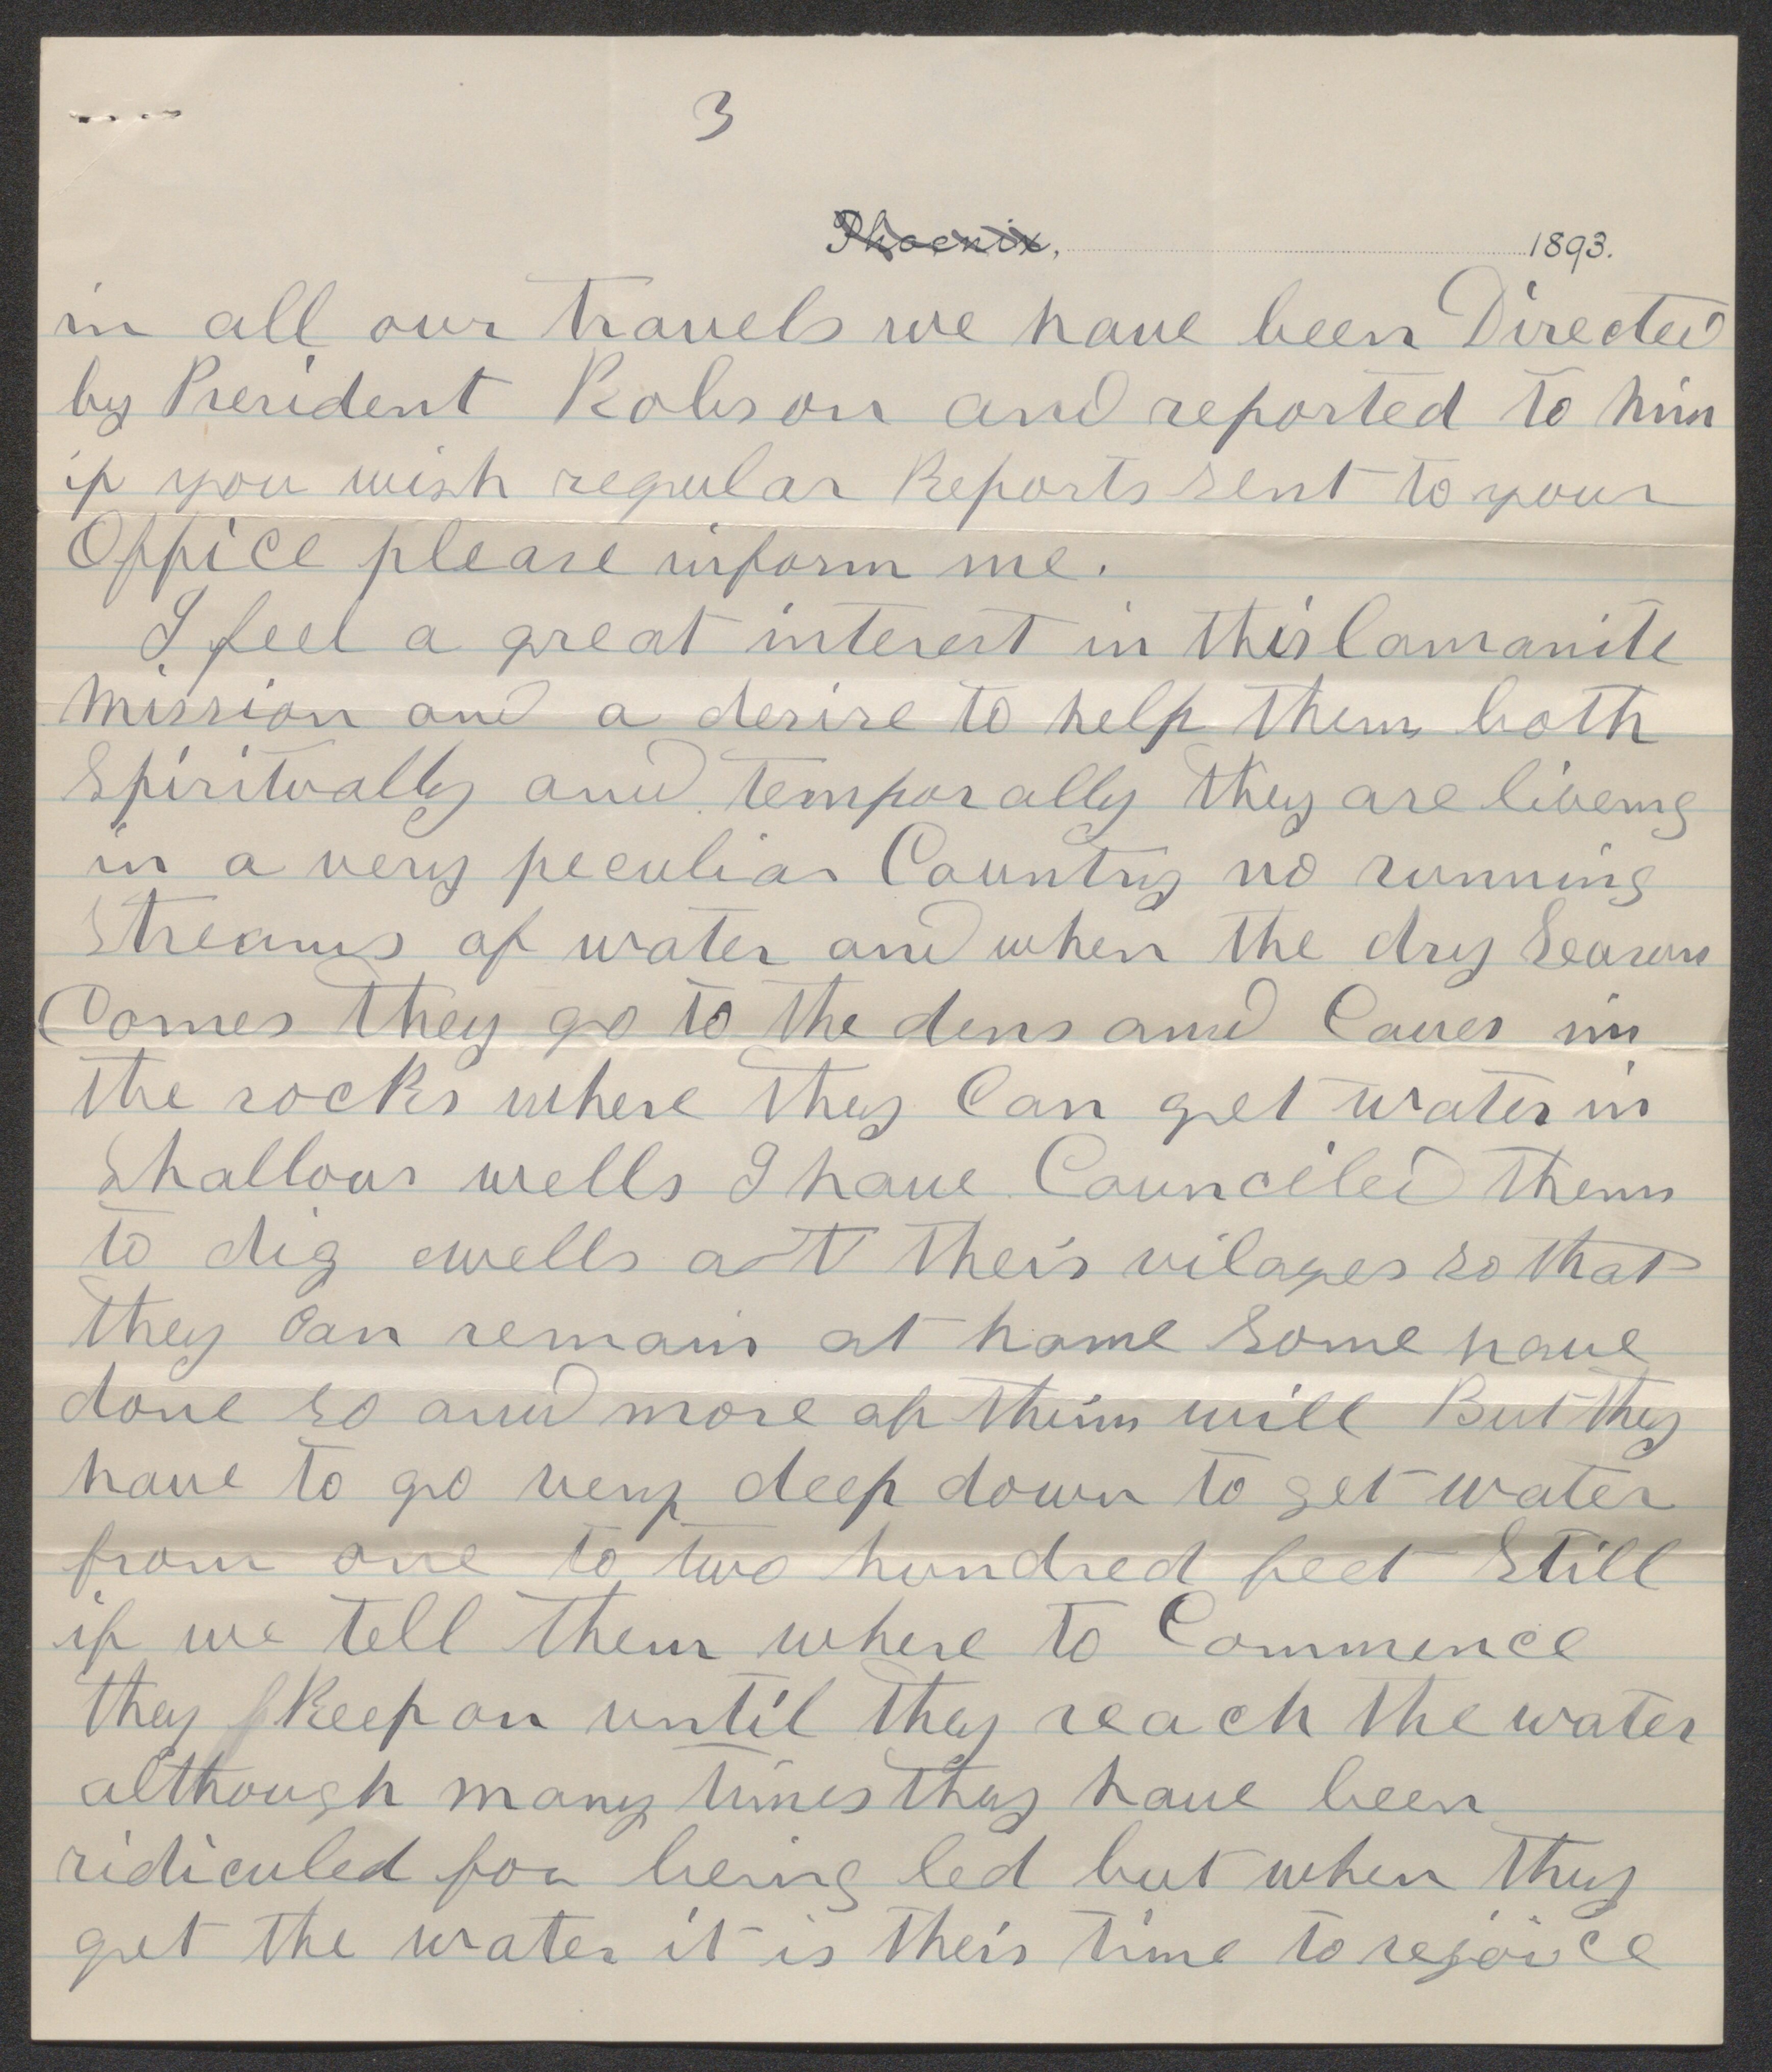 3
Phoenix, 1893.
in all our travels we have been Directed
by President Robson and reported to him
if you wish regular Reports sent to your
Office please inform me.
I feel a great interest in this Lamanite
Mission and a desire to help them both
Spiritually and temporally they are liveing
in a very peculiar Country no running
Streams of water and when the dry Season
Comes they go to the dens and Caves in
the rocks where they Can get water in
Shallow wells I have Counciled them
to dig wells at their vilages so that
they Can remain at home Some have
done so and more of them will But they
have to go very deep down to get water
from one to two hundred feet Still
if we tell them where to Commence
they Keep on until they reach the water
although many times they have been
ridiculed for being led but when they
get the water it is their time to rejoice